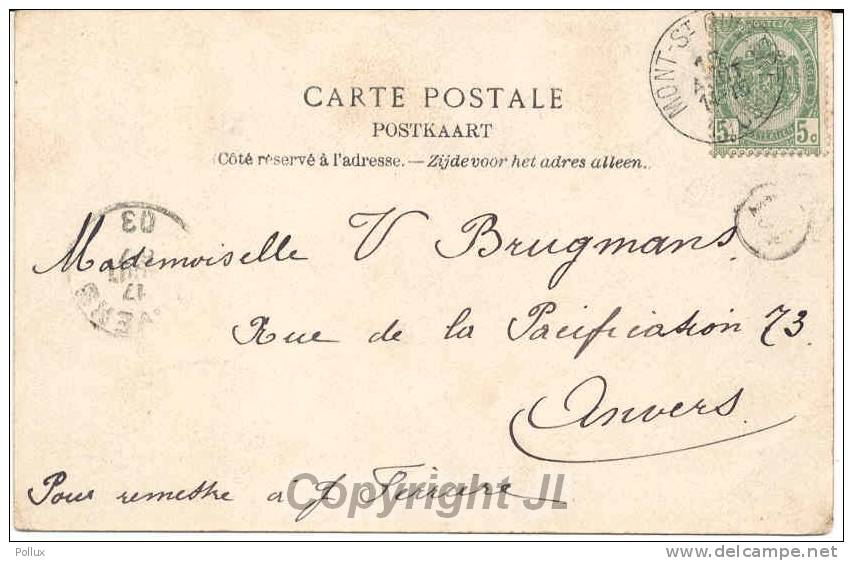 MONT-ST
5c 5c
CARTE POSTALE
POSTKAART
(Côté réservé à l'adresse. — Zijde voor het adres alleen.
03
17
Mademoiselle V Brugmans
Rue de la Pacification 73.
Anvers
Pour remettre a J
Copyright JL
Pollux
www.delcampe.net